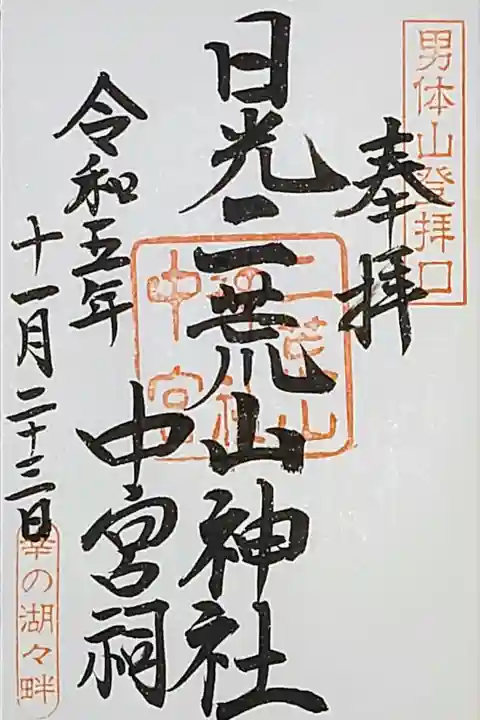 男体山登拝口
奉拝
日光二荒山神社
中宮祠
二荒山
神社
中宮
令和五年
十一月二十三日
幸の湖々畔